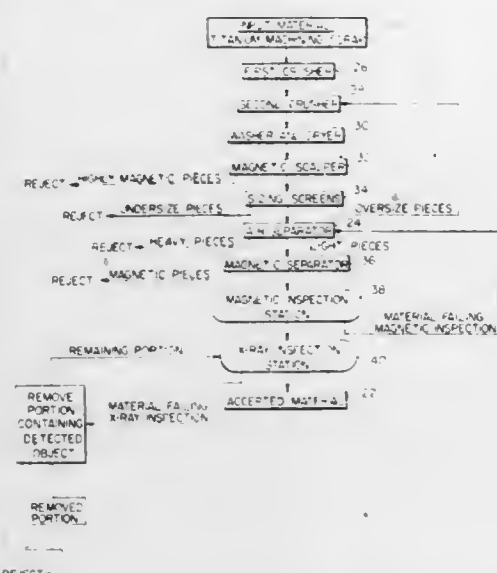 INPUT MATERIAL
TITANIUM MACHINING
FIRST CRUSHER 26
SECOND CRUSHER
WASHER AND DRYER 30
MAGNETIC SCALPER 32
REJECT HIGHLY MAGNETIC PIECES
SIZING SCREENS 34
REJECT UNDERSIZE PIECES
OVERSIZE PIECES
AIR SEPARATOR 24
REJECT HEAVY PIECES
LIGHT PIECES
MAGNETIC SEPARATOR 36
REJECT MAGNETIC PIECES
MAGNETIC INSPECTION 38
STATION
MATERIAL FAILING
MAGNETIC INSPECTION
REMAINING PORTION
X-RAY INSPECTION
STATION 40
ACCEPTED MATERIAL 22
MATERIAL FAILING
X-RAY INSPECTION
REMOVE
PORTION
CONTAINING
DETECTED
OBJECT
REMOVED
PORTION
REJECT